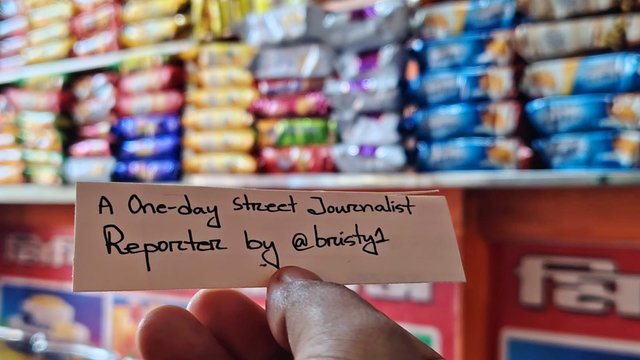 A One-day Street Journalist
Reporter by @bristy1